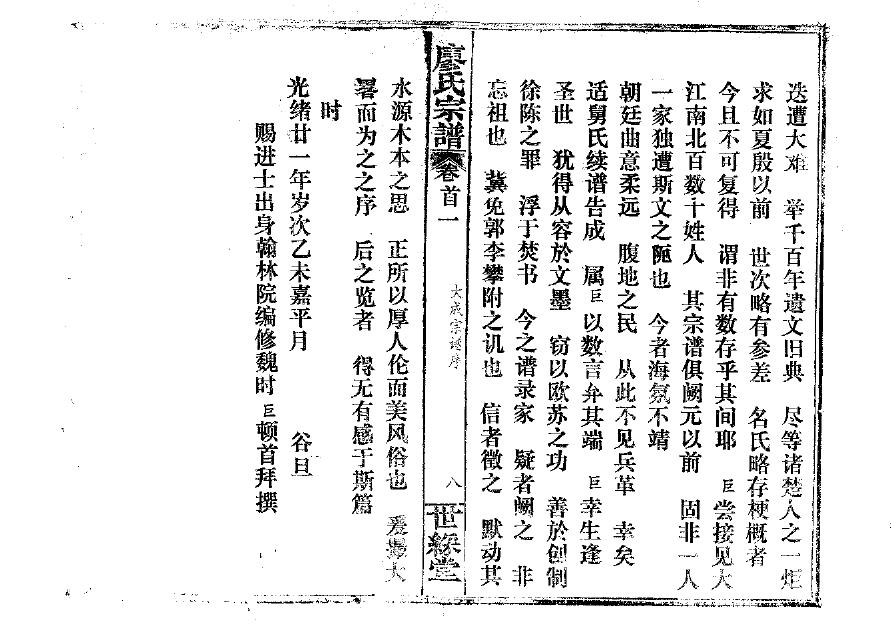 迭遭大难 举千百年遗文旧典 尽等诸楚人之一炬
求如夏殷以前 世次略有参差 名氏略存梗概者
今且不可复得 谓非有数存乎其间耶 巨尝接见大
江南北百数十姓人 其宗谱俱阙元以前 固非一人
一家独遭斯文之阨也 今者海氛不靖
朝廷曲意柔远 腹地之民 从此不见兵革 幸矣
适舅氏续谱告成 属巨以数言弁其端 巨幸生逢
圣世 犹得从容於文墨 窃以欧苏之功 善於创制
徐陈之罪 浮于焚书 今之谱录家 疑者阙之 非
忘祖也 冀免郭李攀附之讥也 信者徵之 默动其
廖氏宗譜 卷首一 大成宗谱序 八 世綵堂
水源木本之思 正所以厚人伦而美风俗也 爰撮大
畧而为之之序 后之览者 得无有感于斯篇
时
光绪廿一年岁次乙未嘉平月 谷旦
赐进士出身翰林院编修魏时巨顿首拜撰